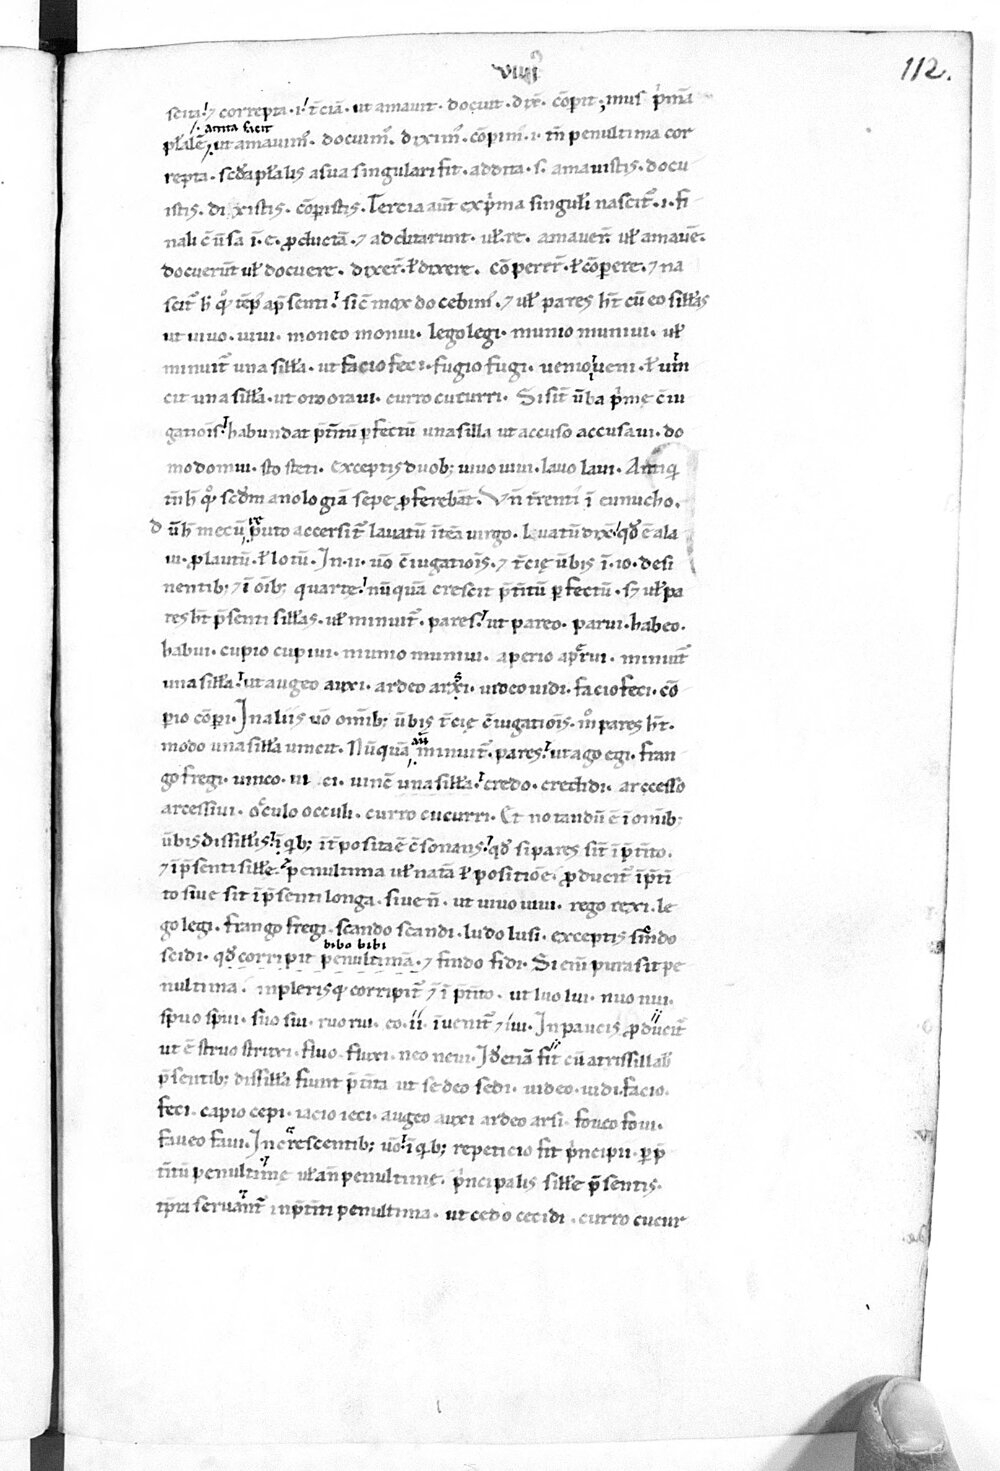 VIIII
112.
scita! ⁊ correpta · i! t̄ciā · ut amauit · docuit · dix̄ · cōpit ; mus p̄mā
addita facit
pl̄alē, ut amauim̄ · docuim̄ · dixim̄ · cōpim̄ · i · tn̄ penultima cor
repta · scd̄a pl̄alis a sua singulari fit · addita · s · amauistis · docu
istis · dixistis · cōpistis · Tercia aut̄ ex p̄ma singul̄i nascit̄ · i · fi
nali ē ūsa ī · e · p̄ductā · ⁊ addita runt · ul̄ · re · amauer̄ ul̄ amauē ·
docuerūt ul̄ docuere · dixer̄ · ł dixere · cōperer̄ · ł cōpere · ⁊ na
ut uiuo · uiui · moneo monui · lego legi · munio muniui · ul̄
minuit̄ una sill̄a · ut facio feci · fugio fugi · uenio ueni · ł uin
cit una sill̄a · ut oro oraui · curro cucurri · Si sit̄ ūba p̄mę c̄iu
gatiōis! habundat p̄t̄itū p̄fectū una silla ut accuso accusaui · do
mo domui · sto steti · exceptis duob; uiuo uiui · lauo laui · Antiq̄
tn̄ h̄ q̊ scd̄m anologiā sepe p̄ferebāt · Vn̄ t̄renti ī eunucho ·
d ūh̄ mecū reputo accersit̄ lauatū it̄eā uirgo · Lauatū dix̄! qd̄ ē a la
ui · p̄ lautū · ł lotū · In · ii · uō c̄iugatiōis · ⁊ t̄cię ūbis ī · io · desi
nentib; ⁊ ī oīb; quarte! nūquā crescit p̄t̄itū p̄fectū · s; ul̄ pa
res h̄t p̄senti sill̄as · ul̄ minuit̄ · pares! ut pareo · parui · habeo ·
habui · cupio cupiui · munio muniui · aperio ap̄rui · minuit̄
una sill̄a! ut augeo auxi · ardeo arsi · uideo uidi · facio feci · cō
perio cōperi · In aliis uō omīb; ūbis t̄cię c̄iugatiōis · m̊ pares h̄t ·
modo una sill̄a uincit · Nūquā aū minuit̄ · pares! ut ago egi · fran
go fregi · uinco · ui ci · uinc̄ una sill̄a! credo · credidi · arcesso
arcessiui · occulo occuli · curro cucurri · Et notandū ē ī omīb;
ūbis dissill̄is! ī qib; īt̄posita ē c̄sonans! qd̄ si pares sit̄ ī p̄t̄ito ·
⁊ ī p̄senti sill̄e · penultima ul̄ natā ł positiōe · p̄ducit̄ ī p̄t̄i
to siue sit ī p̄senti longa · siue n̄ · ut uiuo uiui · rego rexi · le
go legi · frango fregi · scando scandi · ludo lusi · exceptis scindo
bibo bibi
scidi · qd̄ corripit penultimā · ⁊ findo fidi · Si eni puras it pe
nultima · in plerisq̄ corripit̄ ⁊ ī p̄t̄ito · ut luo lui · nuo nui ·
spuo spui · suo sui · ruo rui · eo · ii · īuenit̄ ⁊ iui · In paucis p̄ducit̄
ut ē struo struxi · fluo · fluxi · neo neui · Id̄ etiā fit cū a trissillab̄
p̄sentib; dissill̄a fiunt p̄t̄ita ut sedeo sedi · uideo · uidi · facio ·
feci · capio cepi · iacio ieci · augeo auxi ardeo arsi · foueo foui ·
faueo faui · In crescentib; uō! ī qib; repeticio fit p̄ncipii · p̄ p̄
t̄itū penultimę ul̄ an̄penultimę · p̄ncipalis sill̄e p̄sentis ·
tp̄ra seruant̄ in p̄t̄iti penultima · ut cedo cecidi · curro cucur